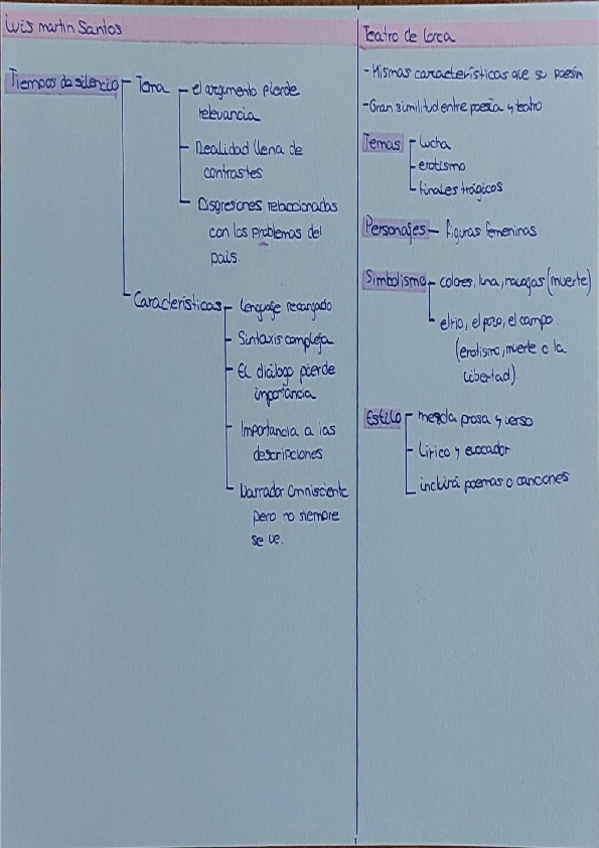 Luis martin Santos
Tiempos de silencio
Tema
el argumento pierde
relevancia
Realidad llena de
contrastes
Disgresones relaccionadas
con los problemas del
pais.
Caracteristicas
Lenguaje recargado
Sintaxis compleja
El diálogo pierde
importancia
Importancia a las
descripciones
Narrador Omnisciente
pero no siempre
se ve.
Teatro de Lorca
- Mismas características que su poesía
- Gran similitud entre poesía y teatro
Temas
lucha
erotismo
finales trágicos
Personajes
figuras femeninas
Simbolismo
colores, luna, navajas (muerte)
el rio, el pozo, el campo
(erotismo, muerte o la
libertad).
Estilo
mezcla prosa y verso
Lírico y evocador
incluirá poemas o canciones